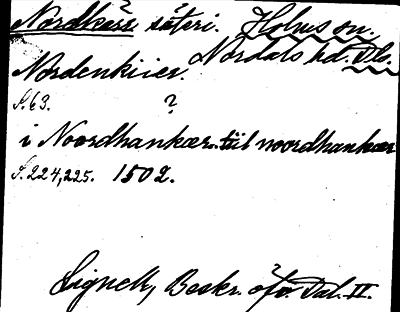 Nordkärr säteri. Holms sn.
Nordals hd. Dls.
Nordenkiier.
S. 63. ?
i Noordhankær till noordhankær
S. 224, 225. 1502.
Lignell, Beskr. öfv. Dal. II.